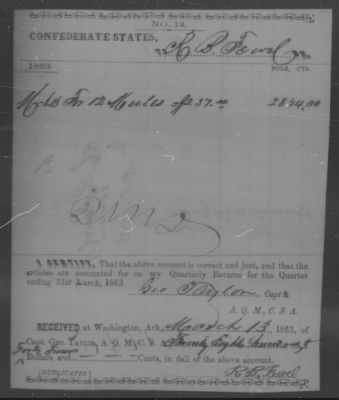 No. 12.
CONFEDERATE STATES,
To R. B.
1863 DOLS. CTS.
For 12 Mules @ 237.00 2844.00
I CERTIFY, That the above account is correct and just, and that the
articles are accounted for on my Quarterly Returns for the Quarter
ending 31st March, 1863.
Geo Taylor Capt &
A. Q. M., C. S. A
RECEIVED at Washington, Ark March 13, 1863, of
Capt. Geo. Taylor, A. Q. M., C. S. Twenty Eight Hundred &
Forty Four Dollars and Cents, in full of the above account.
[DUPLICATES] R. B.